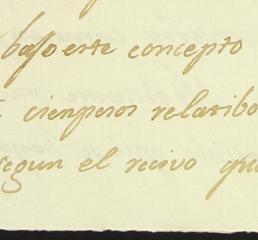 bajo este concepto
cienpesos relatibo
segun el recivo que